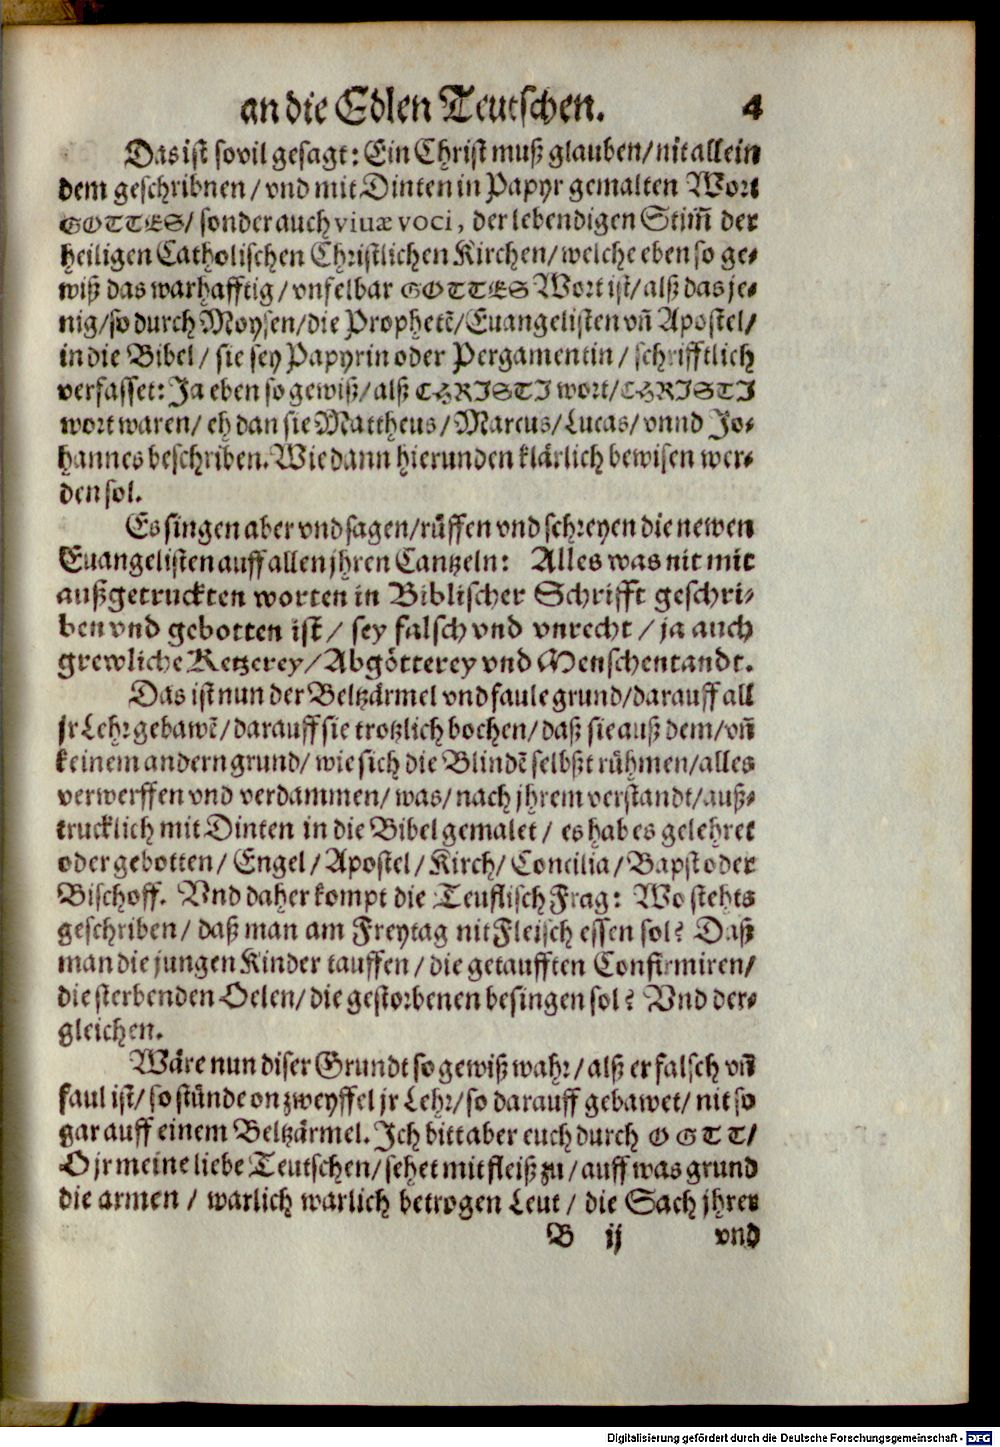 an die Edlen Teutschen. 4
Das ist sovil gesagt: Ein Christ muß glauben/ nit allein
dem geschribnen/ vnd mit Dinten in Papyr gemalten Wort
GOTTES/ sonder auch viuæ voci, der lebendigen Stim̃ der
heiligen Catholischen Christlichen Kirchen/ welche eben so ge-
wiß das warhafftig/ vnfelbar GOTTES Wort ist/ alß das je-
nig/ so durch Moysen/ die Prophetẽ/ Euangelisten vñ Apostel/
in die Bibel/ sie sey Papyrin oder Pergamentin/ schrifftlich
verfasset: Ja eben so gewiß/ alß CHRISTI wort/ CHRISTI
wort waren/ eh dan sie Mattheus/ Marcus/ Lucas/ vnnd Jo-
hannes beschriben. Wie dann hierunden klärlich bewisen wer-
den sol.
Es singen aber vnd sagen/ rüffen vnd schreyen die newen
Euangelisten auff allen jhren Cantzeln: Alles was nit mit
außgetruckten worten in Biblischer Schrifft geschri-
ben vnd gebotten ist/ sey falsch vnd vnrecht/ ja auch
grewliche Ketzerey/ Abgötterey vnd Menschentandt.
Das ist nun der Beltzärmel vnd faule grund/ darauff all
jr Lehr gebawẽ/ darauff sie trotzlich bochen/ daß sie auß dem/ vñ
keinem andern grund/ wie sich die Blindẽ selbßt rühmen/ alles
verwerffen vnd verdammen/ was/ nach jhrem verstandt/ auß-
trucklich mit Dinten in die Bibel gemalet/ es hab es gelehret
oder gebotten/ Engel/ Apostel/ Kirch/ Concilia/ Bapst oder
Bischoff. Vnd daher kompt die Teuflisch Frag: Wo stehts
geschriben/ daß man am Freytag nit Fleisch essen sol? Daß
man die jungen Kinder tauffen/ die getaufften Confirmiren/
die sterbenden Oelen/ die gestorbenen besingen sol? Vnd der-
gleichen.
Wäre nun diser Grundt so gewiß wahr/ alß er falsch vñ
faul ist/ so stünde on zweyffel jr Lehr/ so darauff gebawet/ nit so
gar auff einem Beltzärmel. Ich bitt aber euch durch GOTT/
O jr meine liebe Teutschen/ sehet mit fleiß zu/ auff was grund
die armen/ warlich warlich betrogen Leut/ die Sach jhrer
B ij vnd
Digitalisierung gefördert durch die Deutsche Forschungsgemeinschaft - DFG